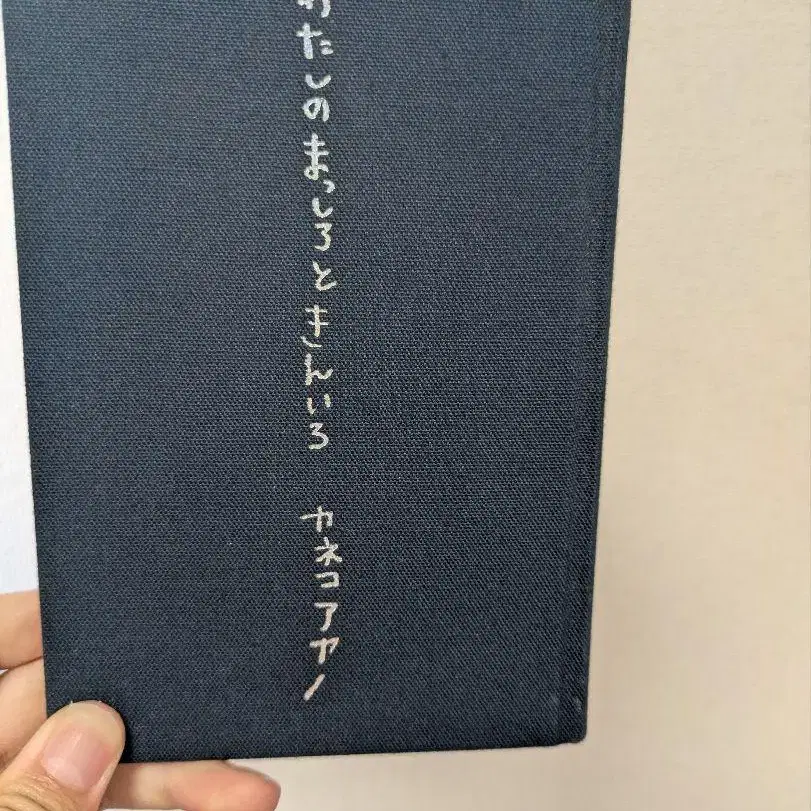 わたしのまっしろときんいろ　カネコアヤノ